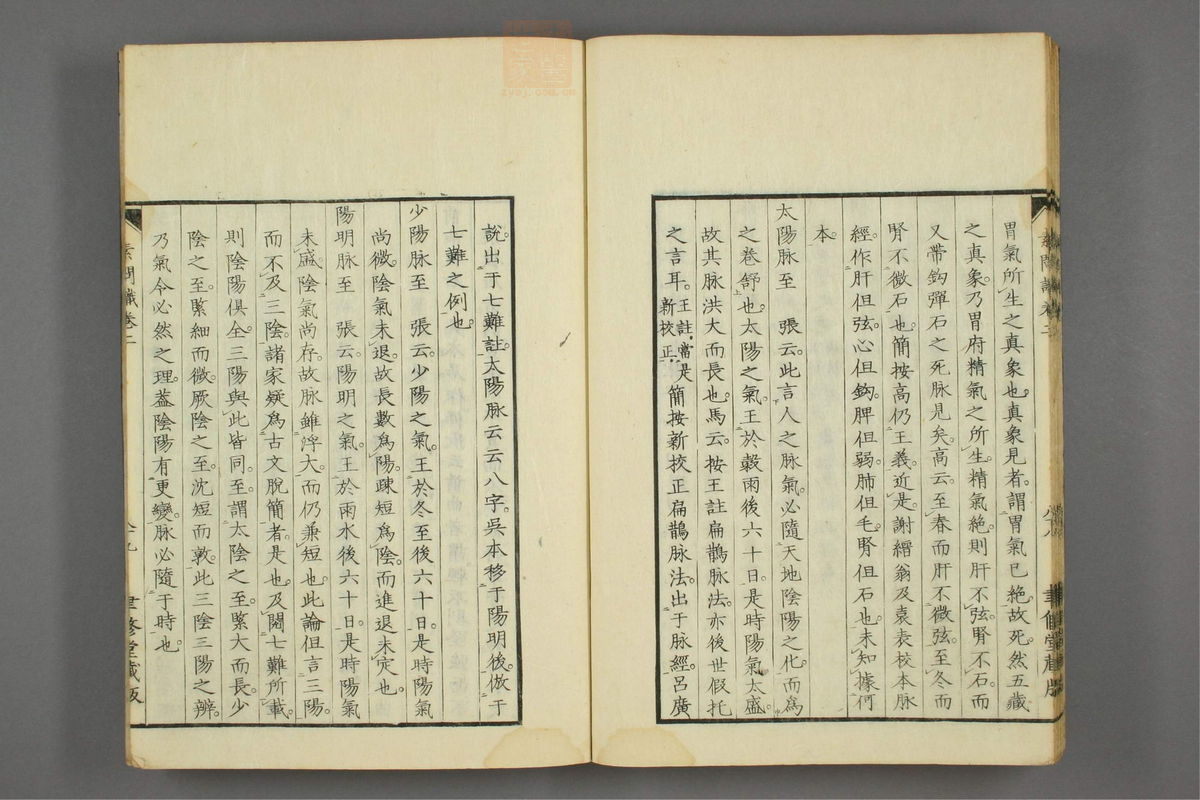 胃氣所生之真象也。真象見者。謂胃氣已絶。故死。然五藏
之真象。乃胃府精氣之所生。精氣絶則肝不弦。腎不石。而
又帶鈎彈石之死脉見矣。高云。至春而肝不微弦。至冬而
腎不微石也。簡按高仍王義。近是。謝縉翁及袁表校本脉
經。作肝但弦。心但鈎。脾但弱。肺但毛。腎但石也。未知據何
本。
太陽脉至　張云。此言人之脉氣。必隨天地陰陽之化。而爲
之卷舒也。太陽之氣。王於穀雨後六十日。是時陽氣太盛。
故其脉洪大而長也。馬云。按王註扁鵲脉法。亦後世假托
之言耳。王註。當是新校正。簡按新挍正扁鵲脉法。出于脉經。呂廣
説。出于七難註。太陽脉云云八字。吳本移于陽明後。倣于
七難之例也。
少陽脉至　張云。少陽之氣。王於冬至後六十日。是時陽氣
尚微。陰氣未退。故長數爲陽。疎短爲陰。而進退未定也。
陽明脉至　張云。陽明之氣。王於雨水後六十日。是時陽氣
未盛。陰氣尚存。故脉雖浮大。而仍兼短也。此論但言三陽。
而不及三陰。諸家疑爲古文脱簡者。是也。及閲七難所載。
則陰陽俱全。三陽與此皆同。至謂太陰之至。緊大而長。少
陰之至。緊細而微。厥陰之至。沈短而敦。此三陰三陽之辨。
乃氣令必然之理。蓋陰陽有更變。脉必隨于時也。
素問識卷二
八九
聿修堂藏版
zysj.com.cn